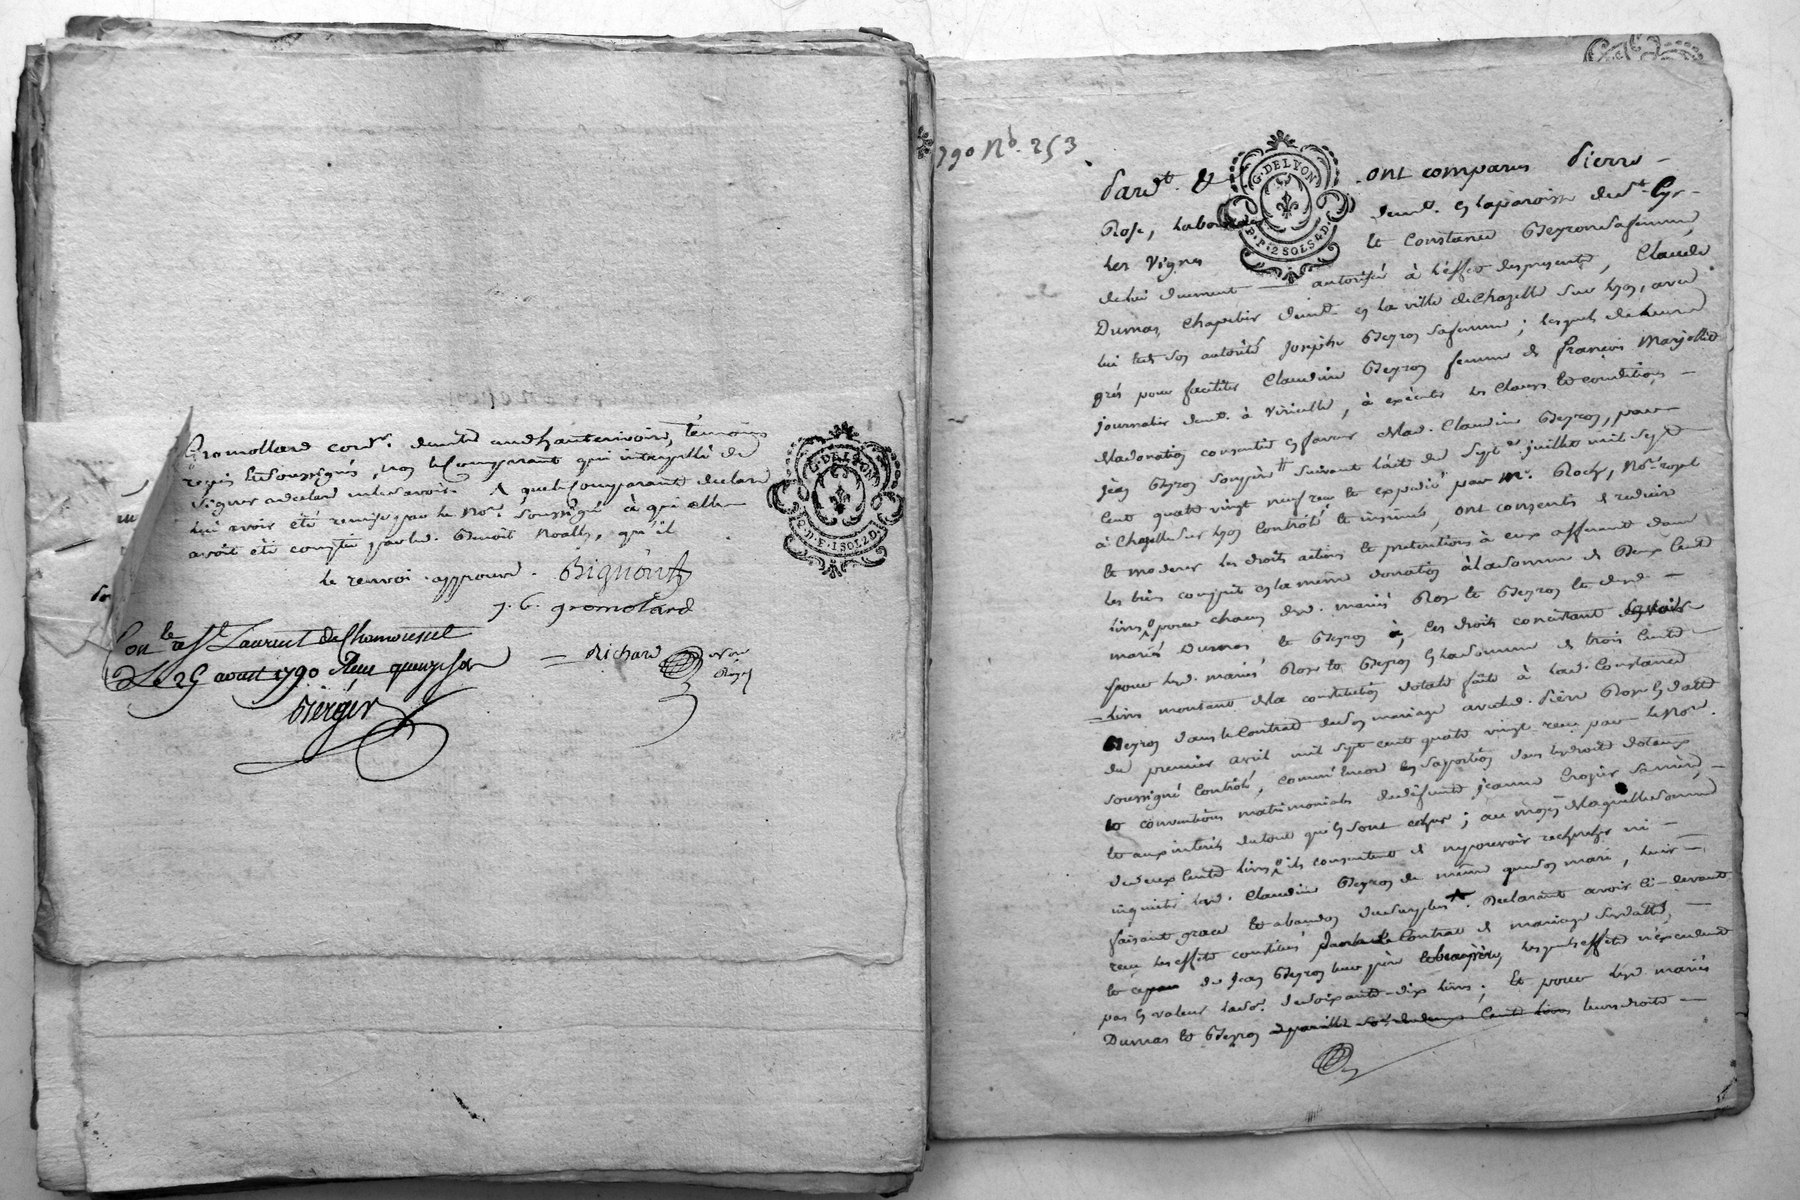 Gromollard cord.r demt. audhauterivoire, témoins
requis et soussignés, non le Comparant qui interpellé de
signer a declaré ne le savoir. A que le Comparant declaré
lui avoir été remise par le No.re soussigné à qui elle
avoit été comptée par led. Benoit Noally, qu'il
le renvoi approuvé. Bignon
J. C. gromolard
Con.lé a St. Laurent de Chamousset
Le 25 avril 1790 Reçu quinze sols
Richard No.re Royal
Bérger
G. DE LYON
G. D. F. 1 SOL 2 D.
790 Nb. 253
G. DE LYON
P. P. 2 SOLS 4 D.
Pardt. & ont comparus Pierre
Rose, Labou demt. en la paroisse de St. Cyr
les Vignes et Constance Beyron sa femme,
de lui duement autorisée à l'effet des presentes, Claude
Dumas, Chapelier demt. en la ville de Chazelle sur Lyon, avec
lui et de son autorité Josephe Beyron sa femme; lesquels de leur
grés pour faciliter Claudine Beyron femme de françois Marjollet
journalier demt. à Viricelle, à exécuter les Clauses et conditions
de la donation consentie en faveur de lad. Claudine Beyron, par
Jean Beyron son père suivant l'acte du Sept juillet mil sept
cent quatre vingt neuf reçu et expedié par Me. Rochy, No.re royal
à Chazelle sur Lyon Controlé et insinué, ont consenti de reduire
et moderer les droits actions et pretentions à eux afferant dans
les biens compris en la même donation à la somme de deux cents
livres pour chacun desd. mariés Rose et Beyron et desd.
mariés Dumas et Beyron, les droits consistant
pour lesd. mariés Rose et Beyron en la somme de trois cents
livres montant de la constitution dotale faite à lad. Constance
Beyron dans le Contrat de son mariage avec led. Pierre Rose en datte
du premier avril mil sept cent quatre vingt reçu par le No.re
soussigné Controlé, comm'encore en sa portion dans les droits dotaux
et conventions matrimoniales de defunte jeanne Crozier sa mère,
et aux interets du tout qui en sont echus; au moyen de laquelle somme
de deux cents livres ils consentent de ne pouvoir rechercher ni
inquieter lad. Claudine Beyron de même que son mari, leur
faisant grace et abandon du surplus. Declarant avoir ci-devant
reçu les effets constitués par le Contrat de mariage susdatté,
et ce de Jean Beyron leur père et beaupère, lesquels effets n'excedent
pas en valeur la de soixante-dix livres; et pour lesd. mariés
Dumas et Beyron leurs droits